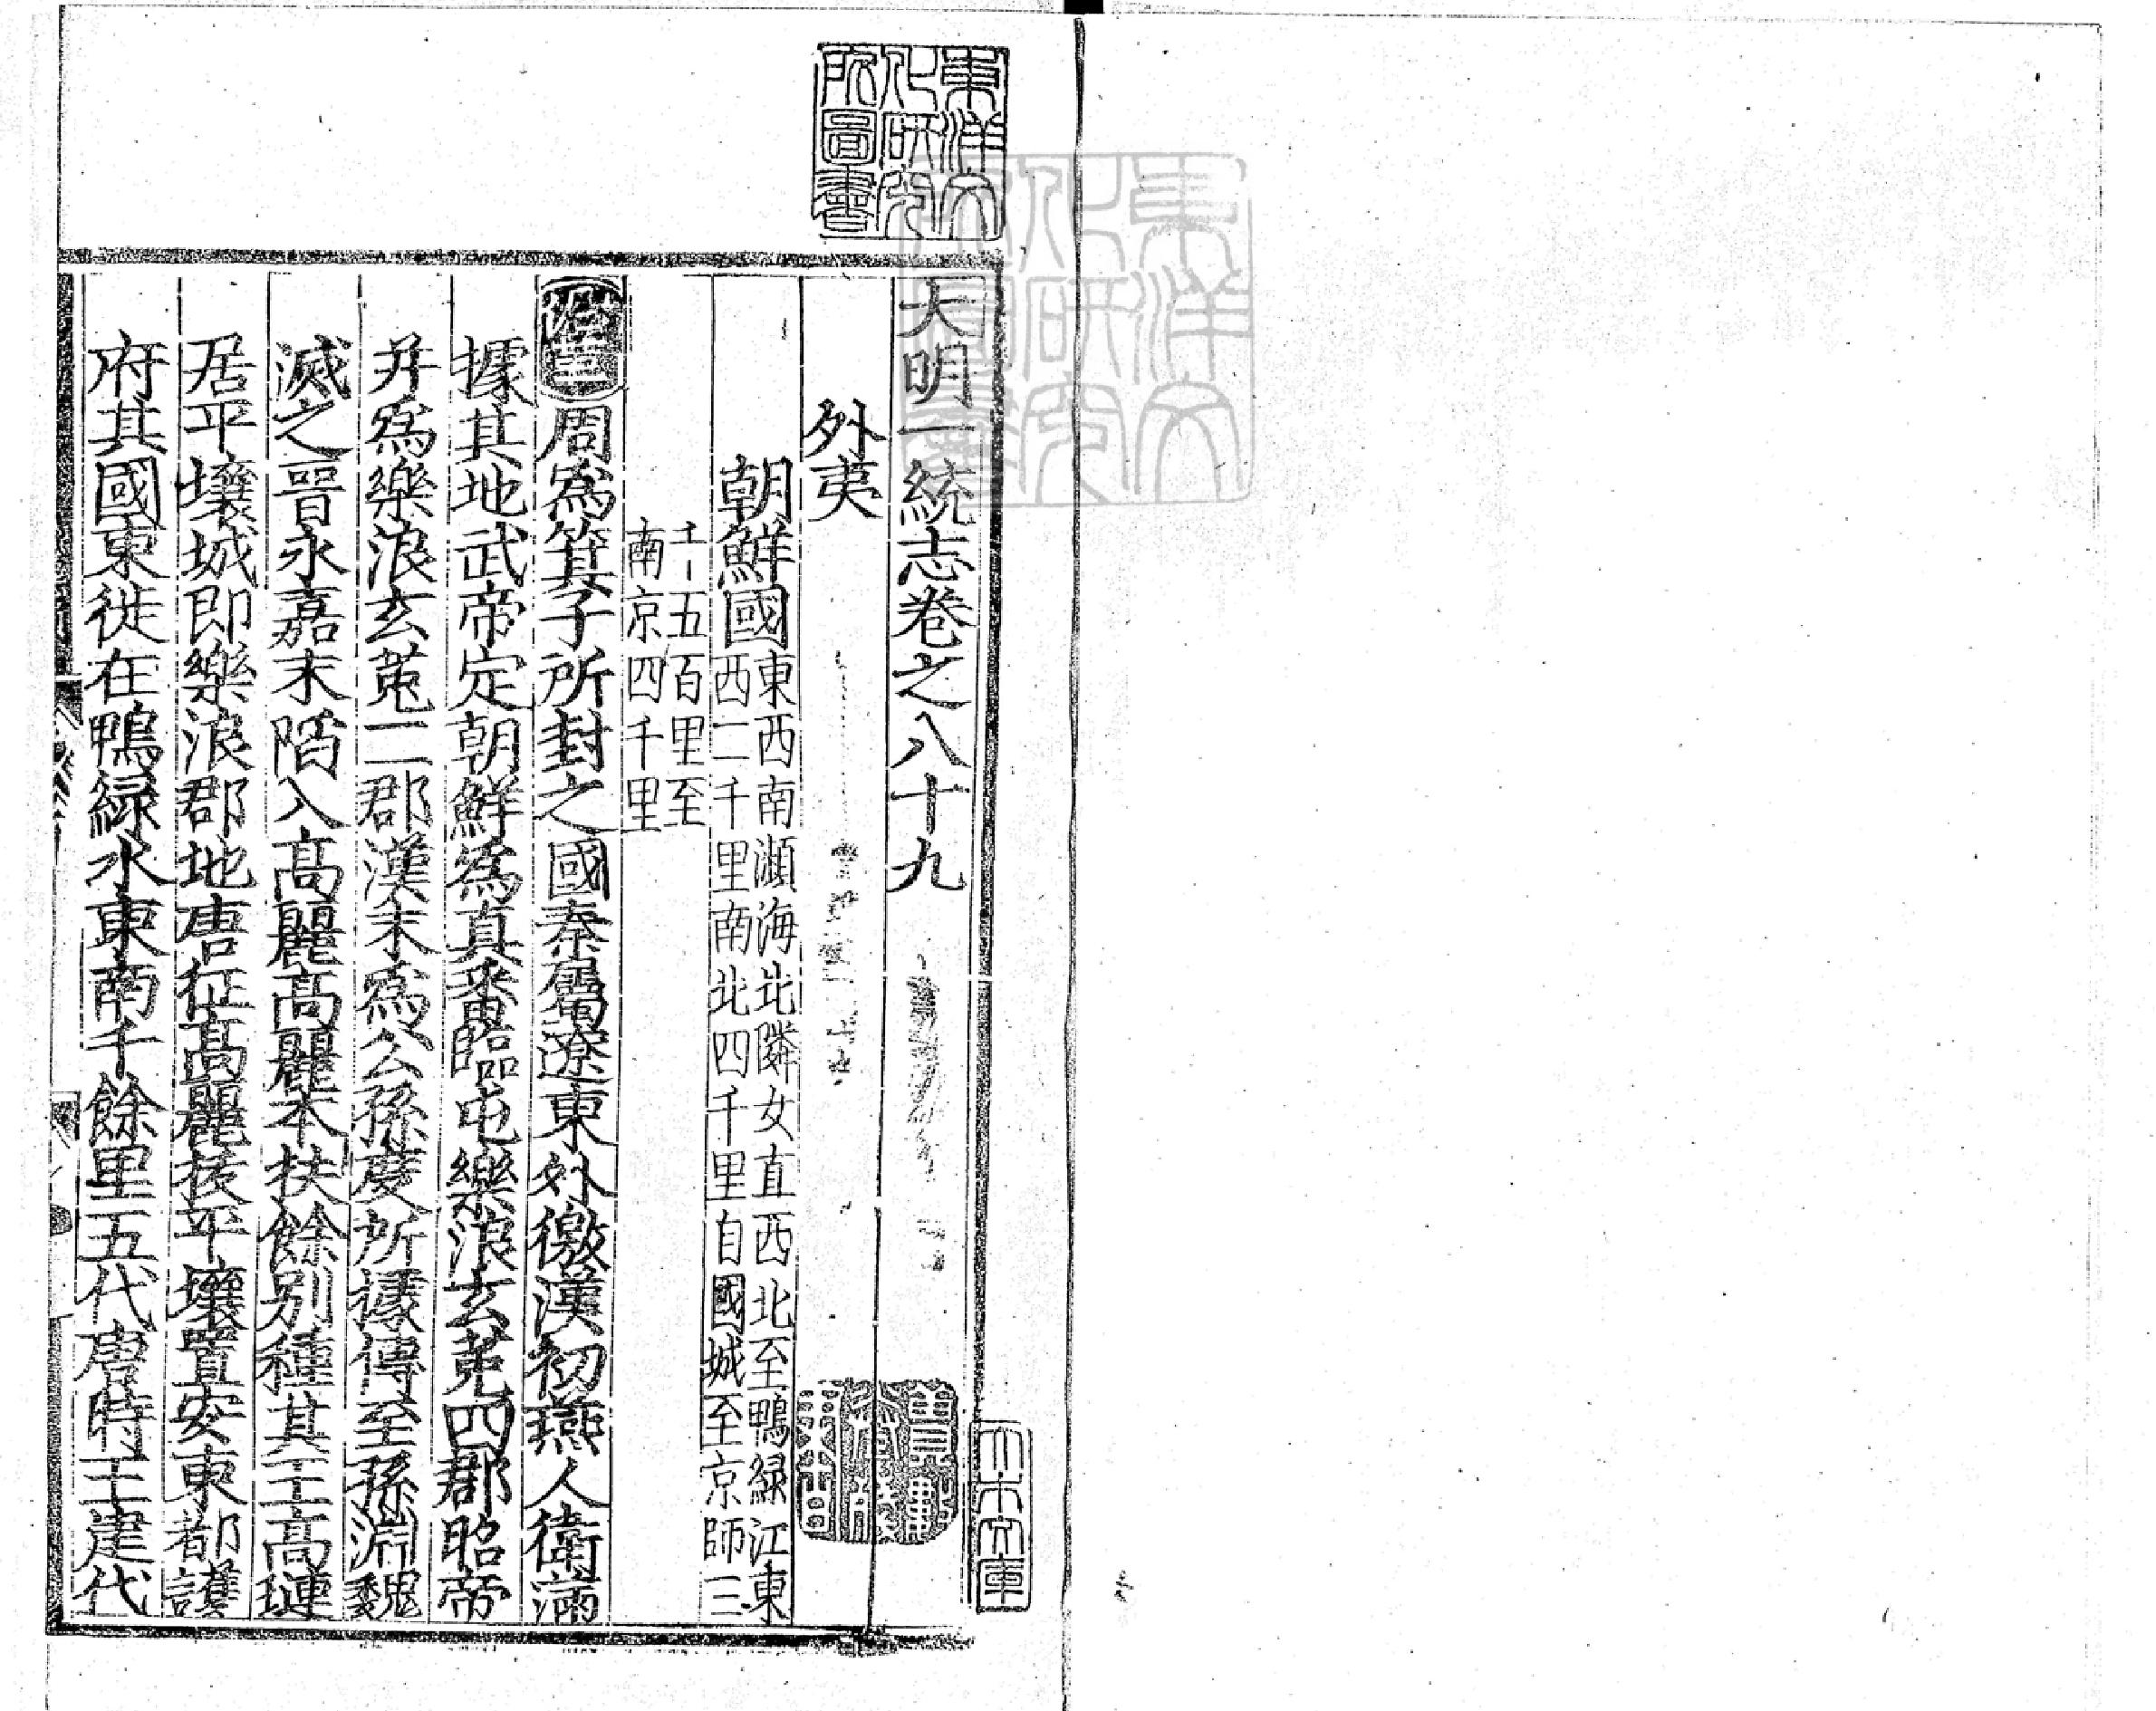 大明一統志卷之八十九
外夷
朝鮮國東西南瀕海北隣女直西北至鴨緑江東
西二千里南北四千里自國城至京師三
千五百里至
南京四千里
沿革周爲箕子所封之國秦屬遼東外徼漢初燕人衛滿
據其地武帝定朝鮮爲真番臨屯樂浪玄菟四郡昭帝
并爲樂浪玄菟二郡漢末爲公孫度所據傳至孫淵魏
滅之晉永嘉末陷入高麗高麗本扶餘別種其王高璉
居平壤城即樂浪郡地唐征高麗拔平壤置安東都護
府其國東徙在鴨緑水東南千餘里五代唐時王建代
東洋文化研究所圖書
大木文庫